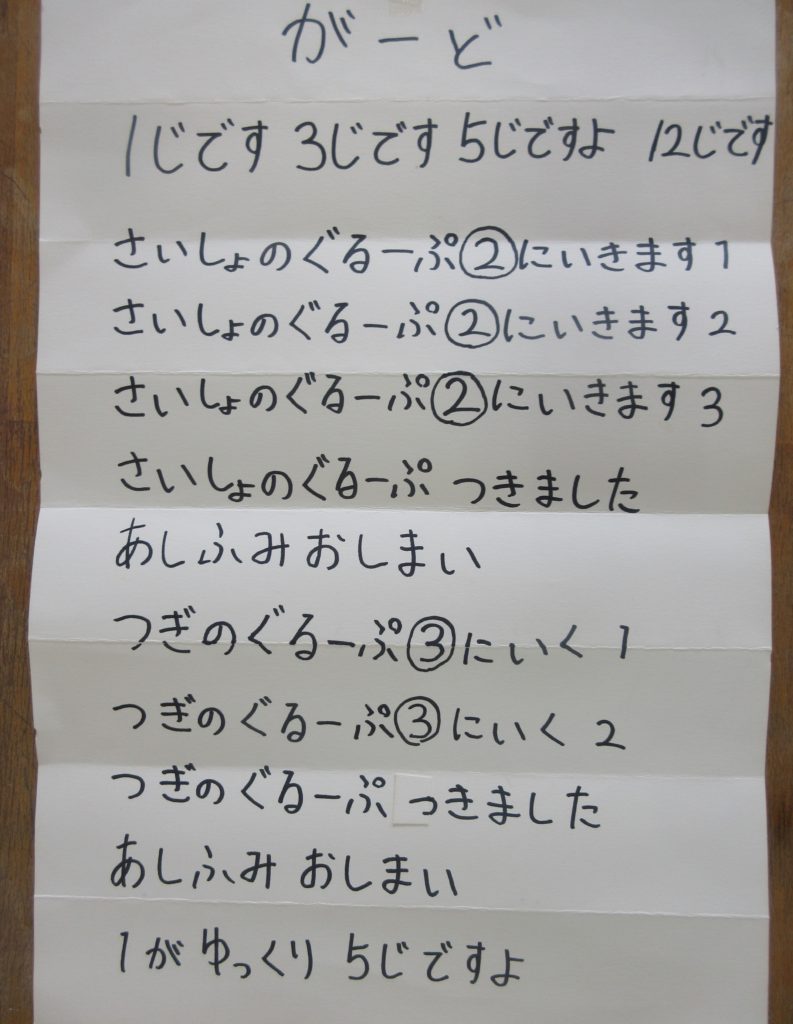 がーど
1じです 3じです 5じですよ 12じです
さいしょのぐるーぷ②にいきます1
さいしょのぐるーぷ②にいきます2
さいしょのぐるーぷ②にいきます3
さいしょのぐるーぷ つきました
あしふみ おしまい
つぎのぐるーぷ③にいく 1
つぎのぐるーぷ③にいく 2
つぎのぐるーぷ つきました
あしふみ おしまい
1が ゆっくり 5じですよ